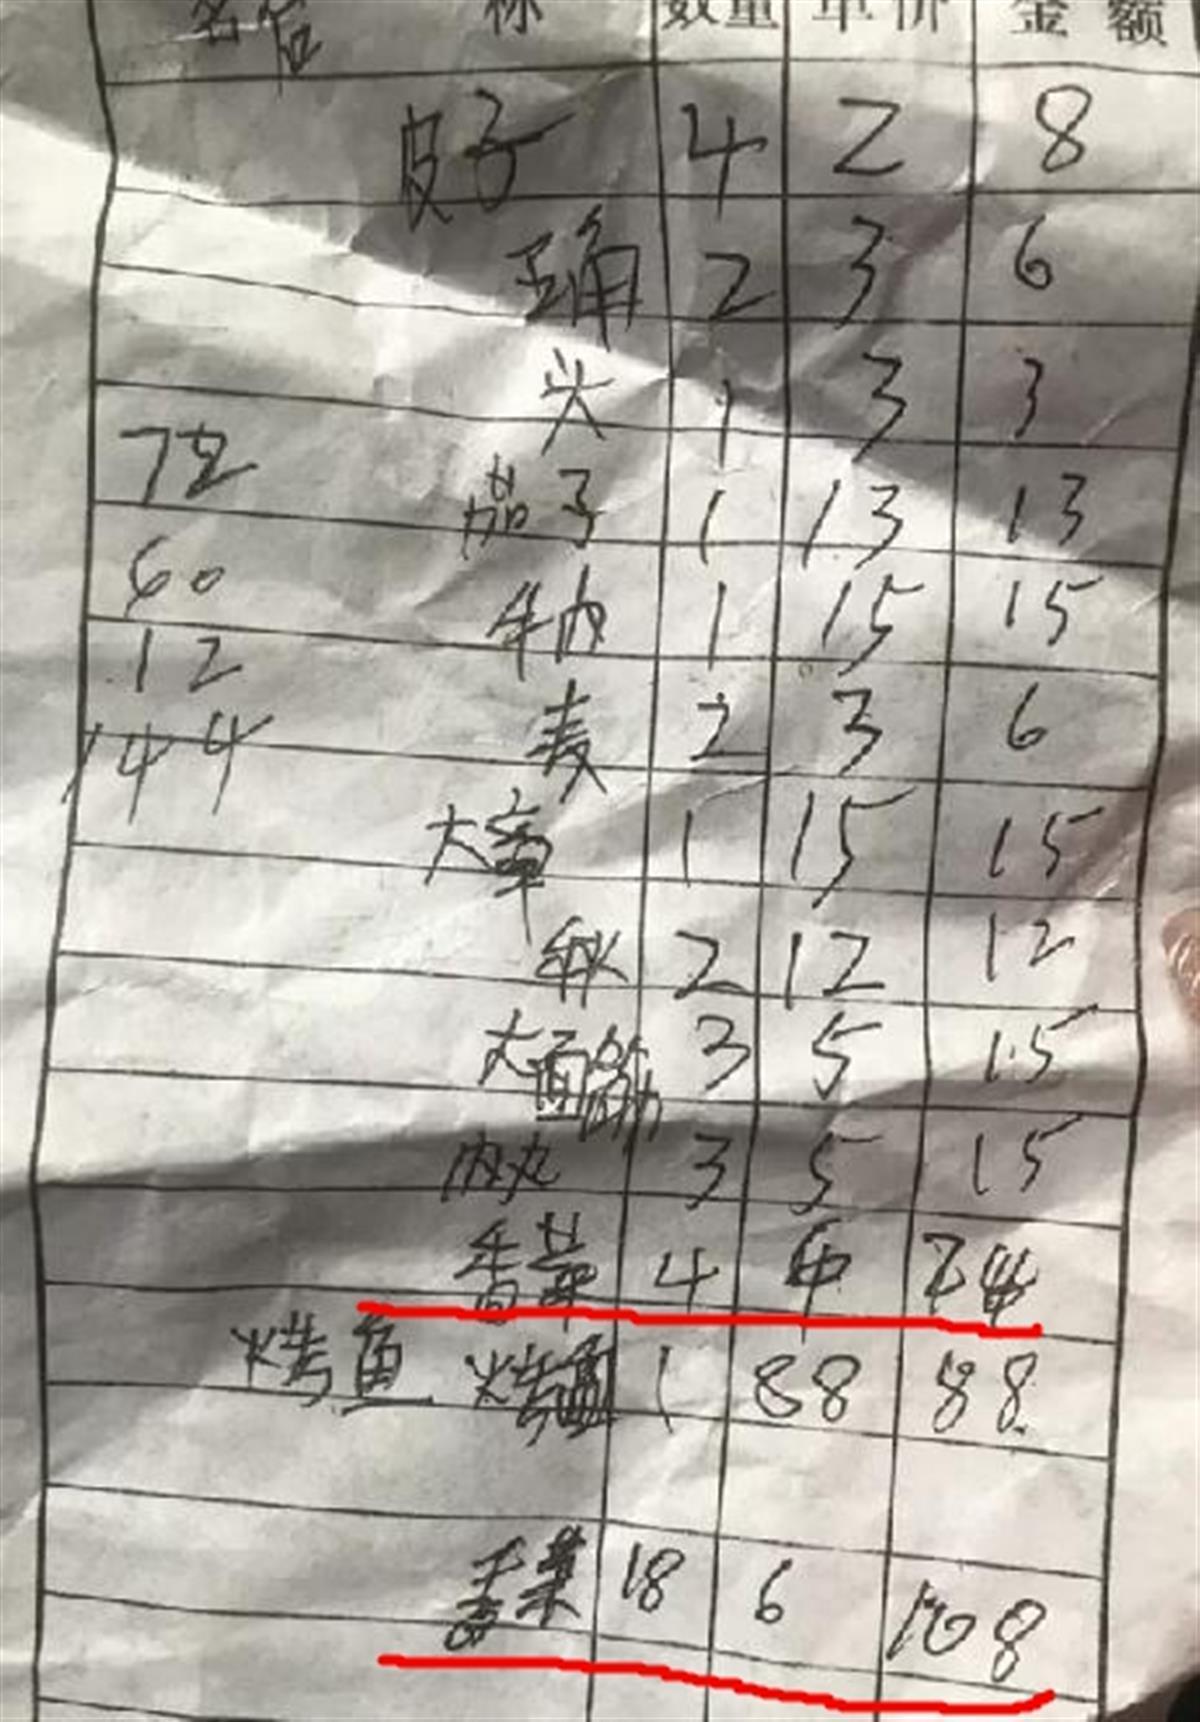 名 称 数量 单价 金额
皮子 4 2 8
2 3 6
头 1 3 3
72
茄子 1 13 13
60
牛肉 1 15 15
12
麦 2 3 6
144
大章 1 15 15
2 12 12
大面筋 3 5 15
肉丸 3 5 15
香菜 4
烤鱼 烤鱼 1 88 88
18 6 108